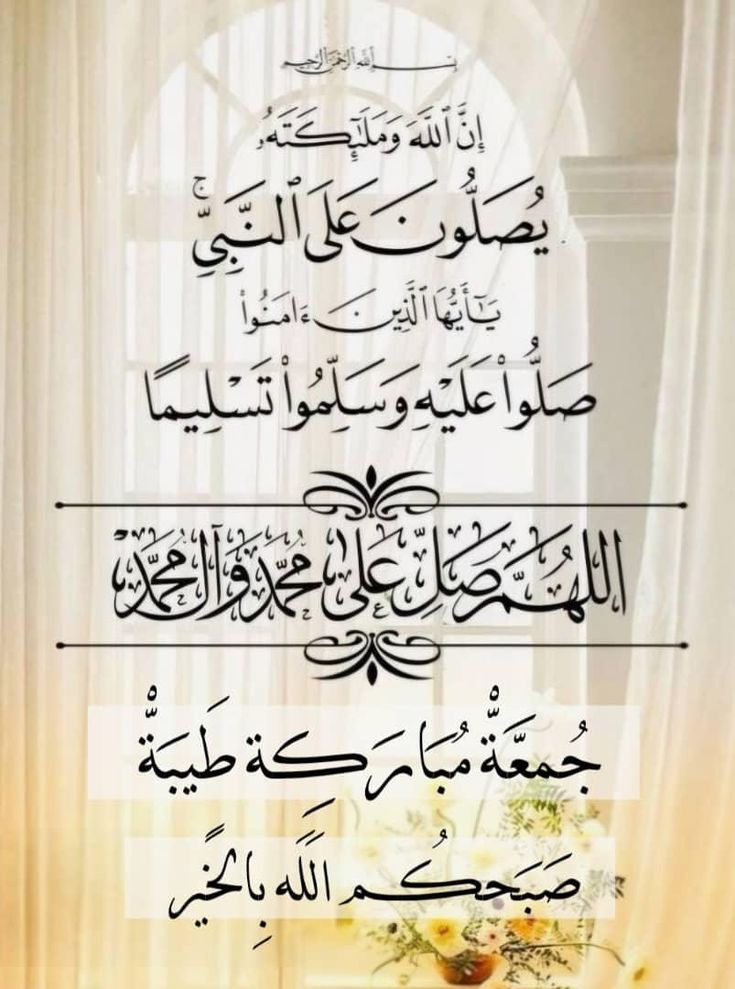 بسم الله الرحمن الرحيم
إِنَّ ٱللَّهَ وَمَلَٰٓئِكَتَهُۥ
يُصَلُّونَ عَلَى ٱلنَّبِيِّۚ
يَٰٓأَيُّهَا ٱلَّذِينَ ءَامَنُوا۟
صَلُّوا۟ عَلَيْهِ وَسَلِّمُوا۟ تَسْلِيمًا
اللَّهُمَّ صَلِّ عَلَىٰ مُحَمَّدٍ وَآلِ مُحَمَّدٍ
جُمعَّةْ مُبَارَكِة طَيبَةّْ
صَبَحكُم اللَّه بِالخَيًر